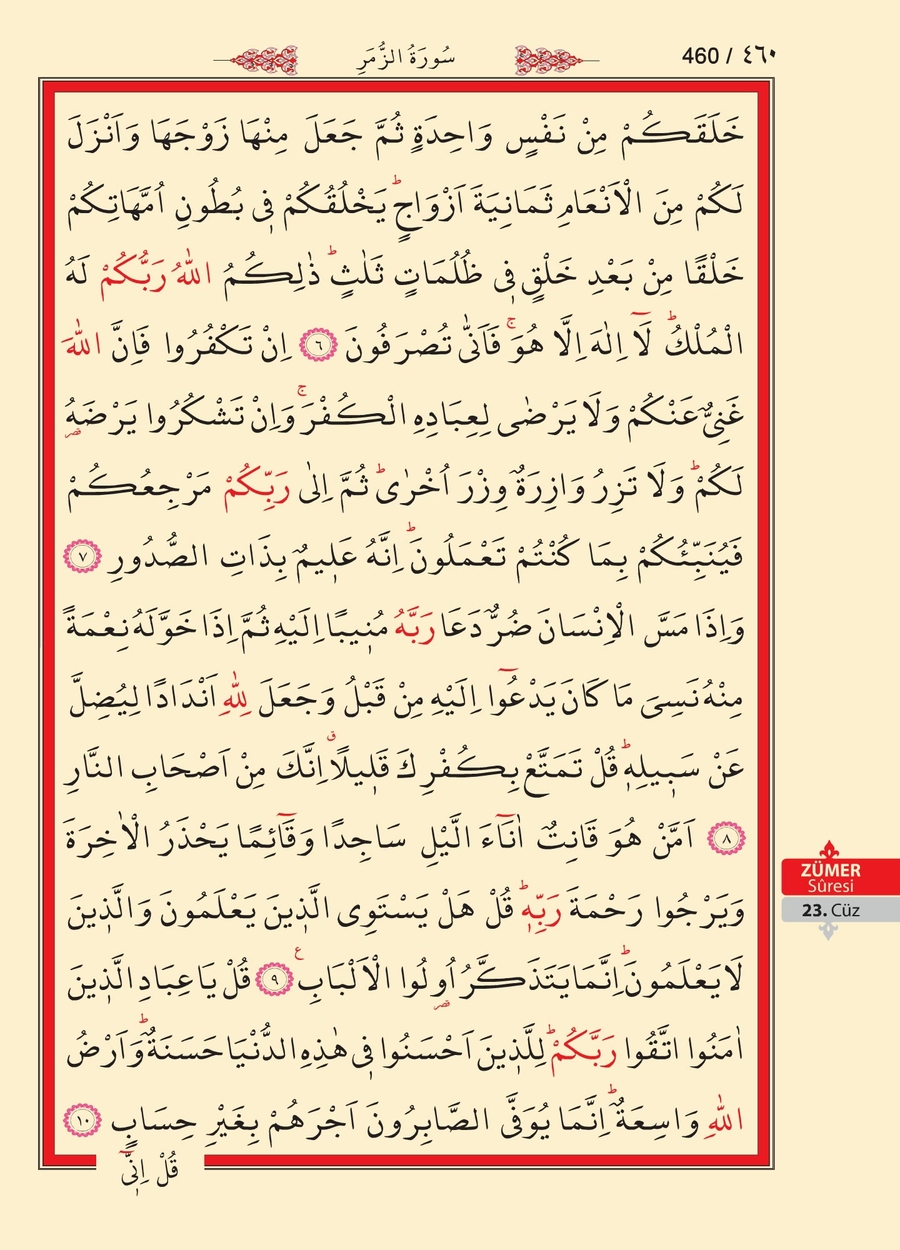 سُورَةُ الزُّمَرِ
460 / ٤٦٠
خَلَقَكُمْ مِنْ نَفْسٍ وَاحِدَةٍ ثُمَّ جَعَلَ مِنْهَا زَوْجَهَا وَاَنْزَلَ
لَكُمْ مِنَ الْاَنْعَامِ ثَمَانِيَةَ اَزْوَاجٍۜ يَخْلُقُكُمْ ف۪ي بُطُونِ اُمَّهَاتِكُمْ
خَلْقًا مِنْ بَعْدِ خَلْقٍ ف۪ي ظُلُمَاتٍ ثَلٰثٍۜ ذٰلِكُمُ اللّٰهُ رَبُّكُمْ لَهُ
الْمُلْكُۜ لَٓا اِلٰهَ اِلَّا هُوَۚ فَاَنّٰى تُصْرَفُونَ ﴿٦﴾ اِنْ تَكْفُرُوا فَاِنَّ اللّٰهَ
غَنِيٌّ عَنْكُمْ وَلَا يَرْضٰى لِعِبَادِهِ الْكُفْرَۚ وَاِنْ تَشْكُرُوا يَرْضَهُ
لَكُمْۜ وَلَا تَزِرُ وَازِرَةٌ وِزْرَ اُخْرٰىۜ ثُمَّ اِلٰى رَبِّكُمْ مَرْجِعُكُمْ
فَيُنَبِّئُكُمْ بِمَا كُنْتُمْ تَعْمَلُونَۜ اِنَّهُ عَل۪يمٌ بِذَاتِ الصُّدُورِ ﴿٧﴾
وَاِذَا مَسَّ الْاِنْسَانَ ضُرٌّ دَعَا رَبَّهُ مُن۪يبًا اِلَيْهِ ثُمَّ اِذَا خَوَّلَهُ نِعْمَةً
مِنْهُ نَسِيَ مَا كَانَ يَدْعُٓوا اِلَيْهِ مِنْ قَبْلُ وَجَعَلَ لِلّٰهِ اَنْدَادًا لِيُضِلَّ
عَنْ سَب۪يلِه۪ۜ قُلْ تَمَتَّعْ بِكُفْرِكَ قَل۪يلًاۗ اِنَّكَ مِنْ اَصْحَابِ النَّارِ
﴿٨﴾ اَمَّنْ هُوَ قَانِتٌ اٰنَٓاءَ الَّيْلِ سَاجِدًا وَقَٓائِمًا يَحْذَرُ الْاٰخِرَةَ
وَيَرْجُوا رَحْمَةَ رَبِّه۪ۜ قُلْ هَلْ يَسْتَوِى الَّذ۪ينَ يَعْلَمُونَ وَالَّذ۪ينَ
لَا يَعْلَمُونَۜ اِنَّمَا يَتَذَكَّرُ اُو۬لُوا الْاَلْبَابِ۟ ﴿٩﴾ قُلْ يَا عِبَادِ الَّذ۪ينَ
اٰمَنُوا اتَّقُوا رَبَّكُمْۜ لِلَّذ۪ينَ اَحْسَنُوا ف۪ي هٰذِهِ الدُّنْيَا حَسَنَةٌۜ وَاَرْضُ
اللّٰهِ وَاسِعَةٌۜ اِنَّمَا يُوَفَّى الصَّابِرُونَ اَجْرَهُمْ بِغَيْرِ حِسَابٍ ﴿١٠﴾
قُلْ اِنّ۪ٓي
ZÜMER
Sûresi
23. Cüz